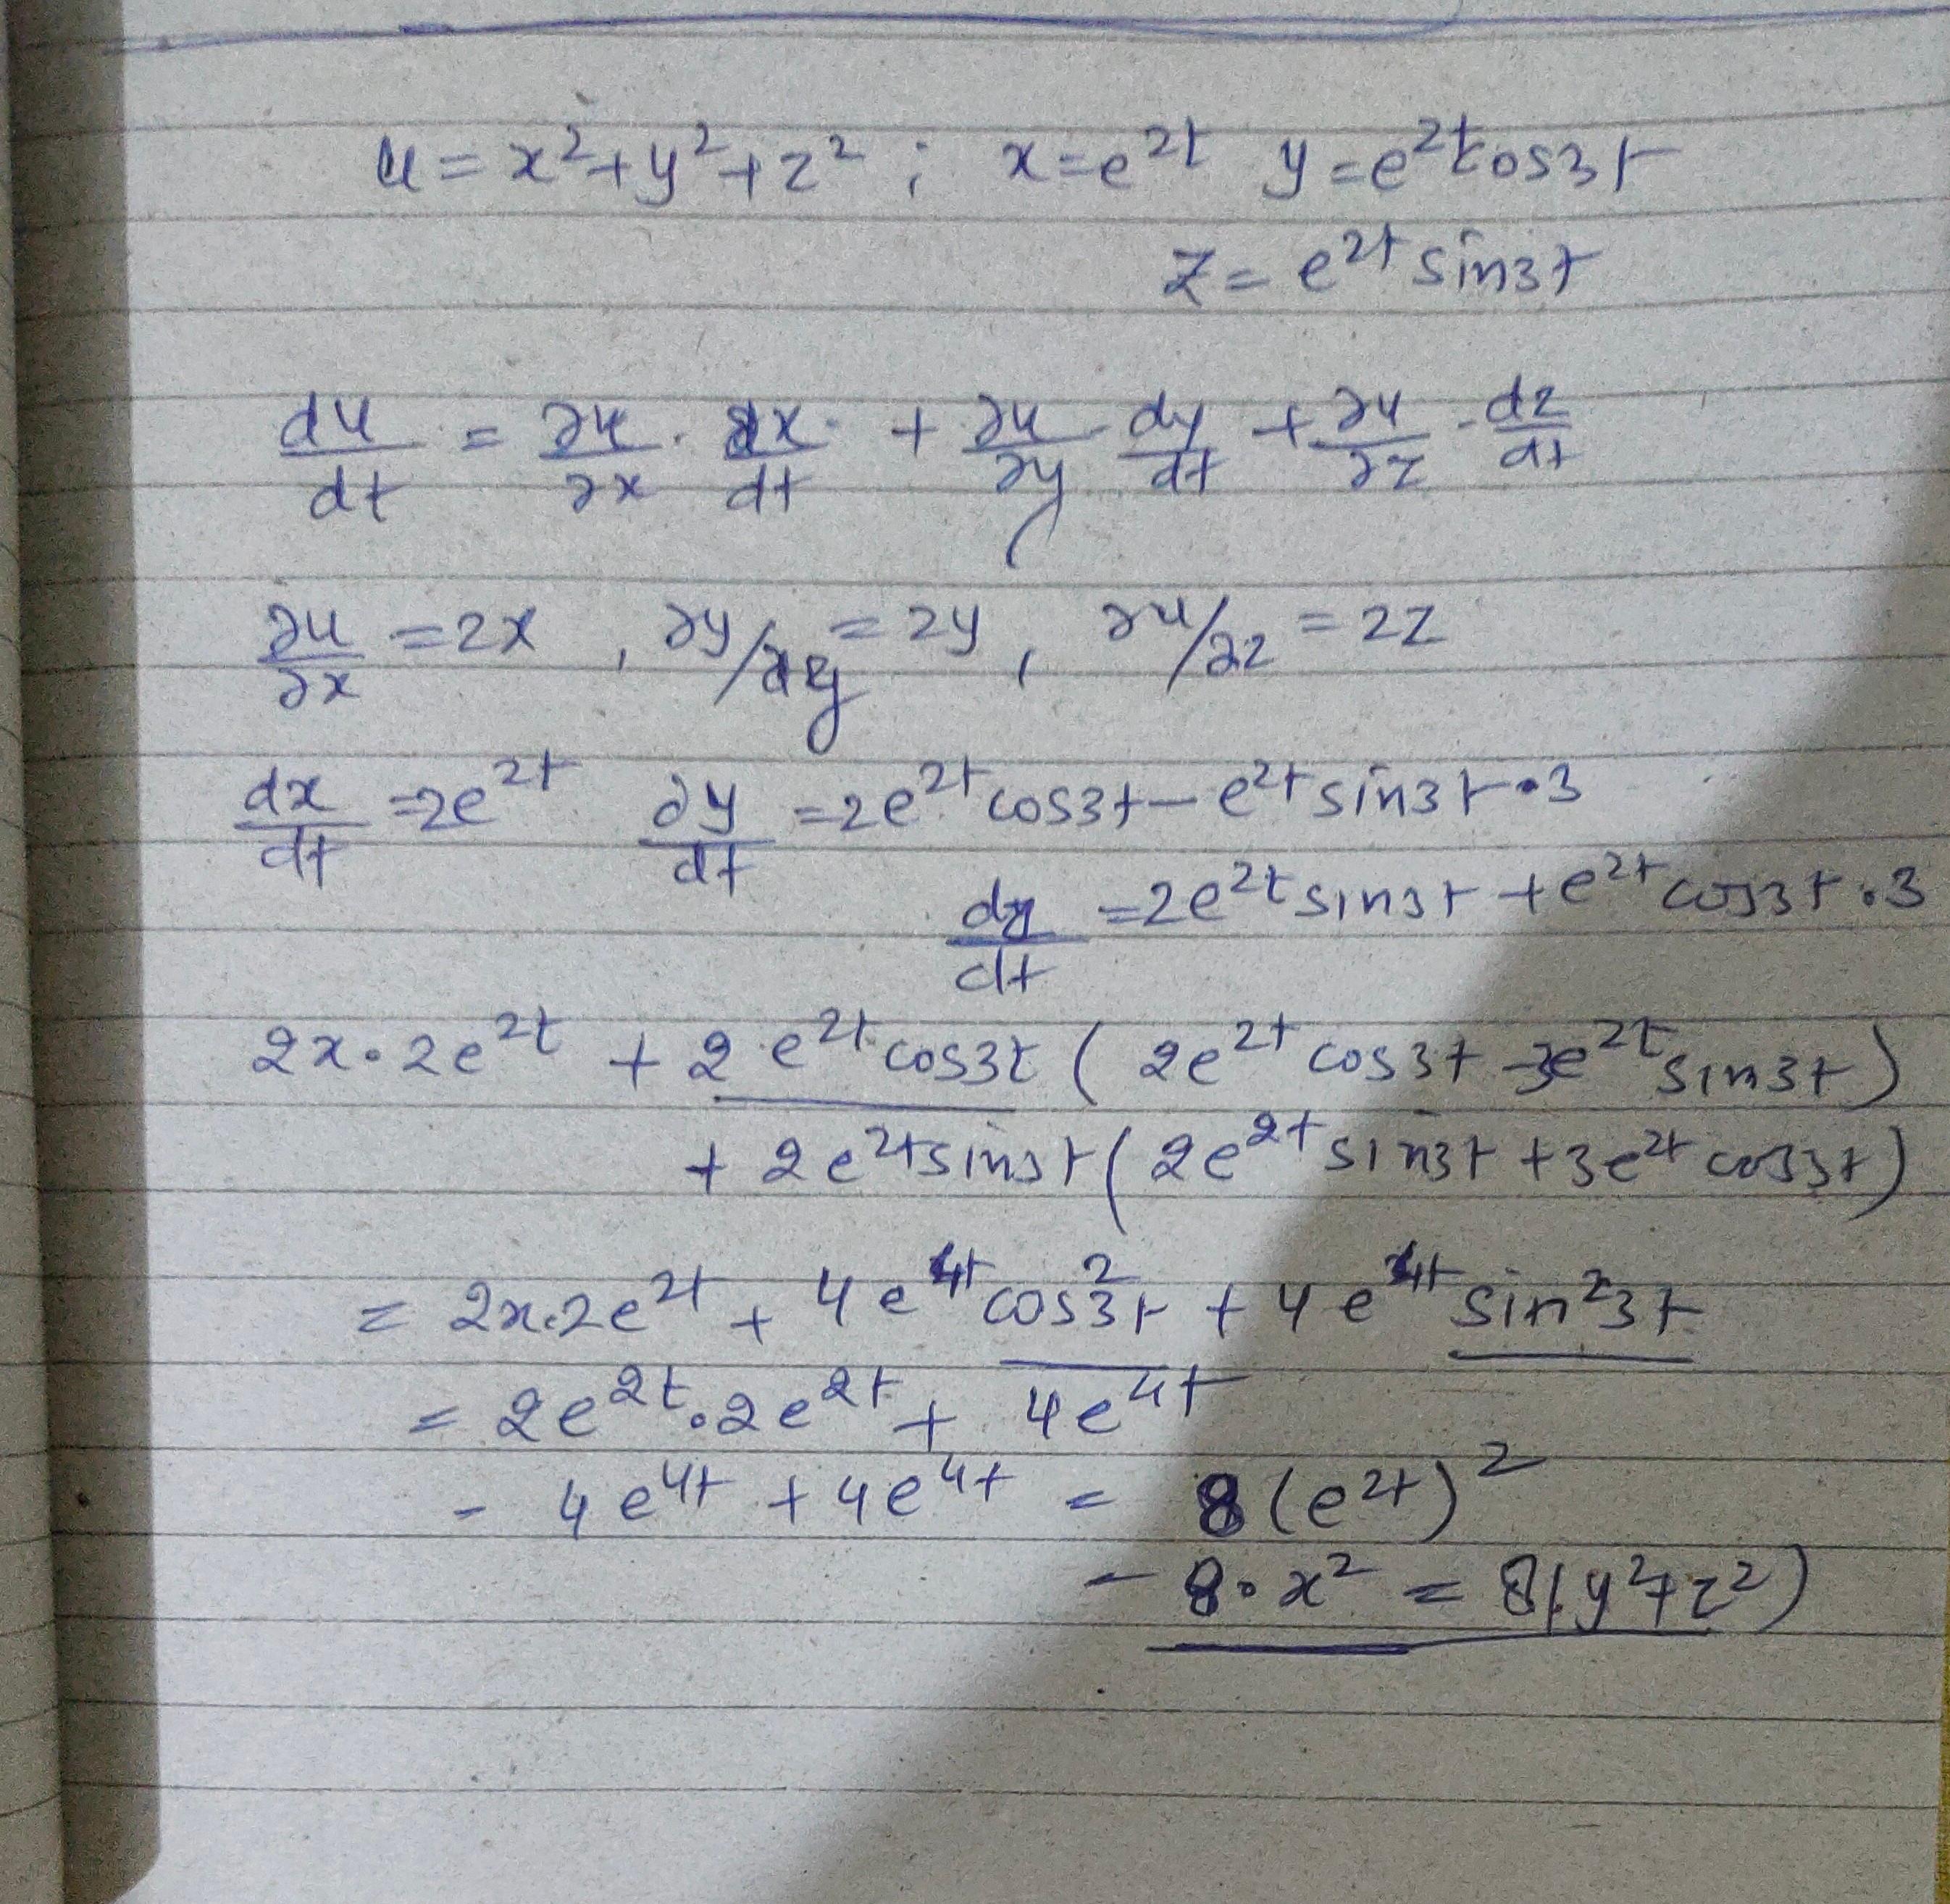 u = x²+y²+z² ; x=e^2t y=e^2t cos3t
z = e^2t sin3t
du/dt = ∂u/∂x · dx/dt + ∂u/∂y · dy/dt + ∂u/∂z · dz/dt
∂u/∂x = 2x , ∂y/∂y = 2y , ∂u/∂z = 2z
dx/dt = 2e^2t ∂y/dt = 2e^2t cos3t − e^2t sin3t · 3
dz/dt = 2e^2t sin3t + e^2t cos3t · 3
2x · 2e^2t + 2 e^2t cos3t ( 2e^2t cos3t − 3e^2t sin3t )
+ 2e^2t sin3t ( 2e^2t sin3t + 3e^2t cos3t )
= 2x · 2e^2t + 4e^4t cos²3t + 4e^4t sin²3t
= 2e^2t · 2e^2t + 4e^4t
- 4e^4t + 4e^4t = 8(e^2t)²
- 8 · x² = 8(y²+z²)